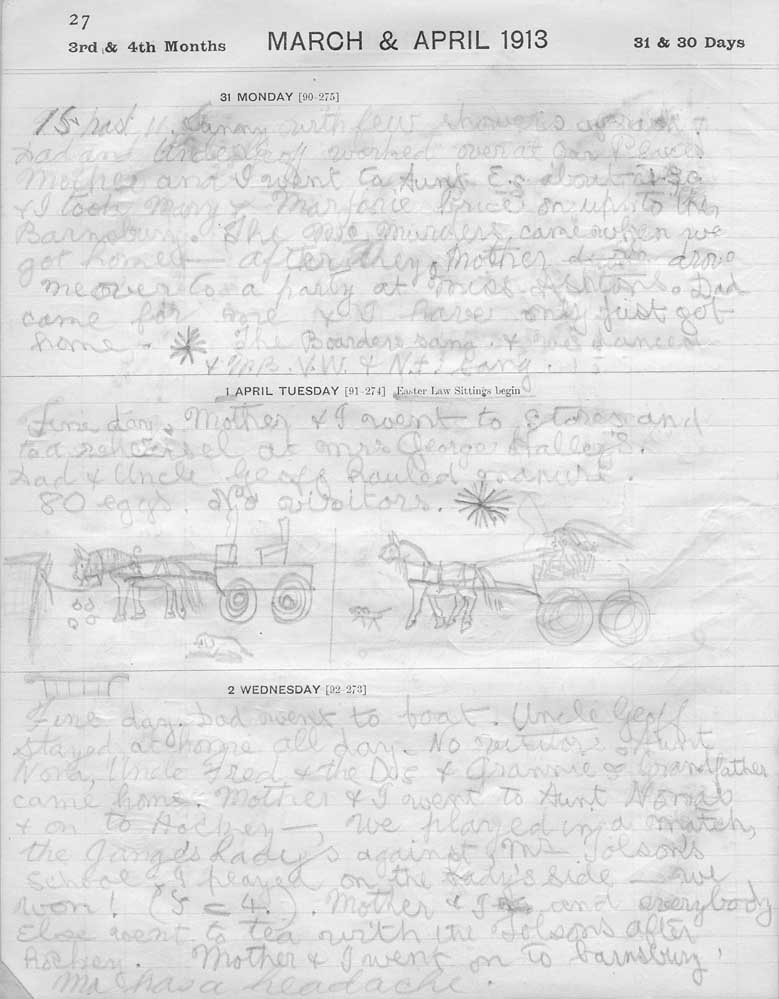 27
3rd & 4th Months MARCH & APRIL 1913 31 & 30 Days
31 MONDAY [90-275]
15 past 11. Sunny with few showers
Dad and Uncle Geoff worked over at
Mother and I went to Aunt E.s about
& I took Mary & Marjorie Price on up to the
Barnsbury. The came when we
got home — after they, Mother drove
me over to a party at Miss Ashtons. Dad
came for me & I have only just got
home. The Boarders sang & we danced
& N.B. V.W. & N.F. sang.
1 APRIL TUESDAY [91-274] Easter Law Sittings begin
Fine day. Mother & I went to stores and
tea rehersel at Mrs George Halley's.
Dad & Uncle Geoff hauled manure.
80 eggs. No visitors.
2 WEDNESDAY [92-273]
Fine day. Dad went to boat. Uncle Geoff
stayed at home all day. No visitors. Aunt
Nora, Uncle Fred & the Dog & Grannie & Grandfather
came home. Mother & I went to Aunt Noras
& on to Hockey — We played in a match,
the Ganges Lady's against Mr Tolsons
School. I played on the Lady's side — we
won! (5 = 4.). Mother & I and everybody
Else went to tea with the Tolsons after
hockey. Mother & I went on to barnsbury
Mr has a headache.